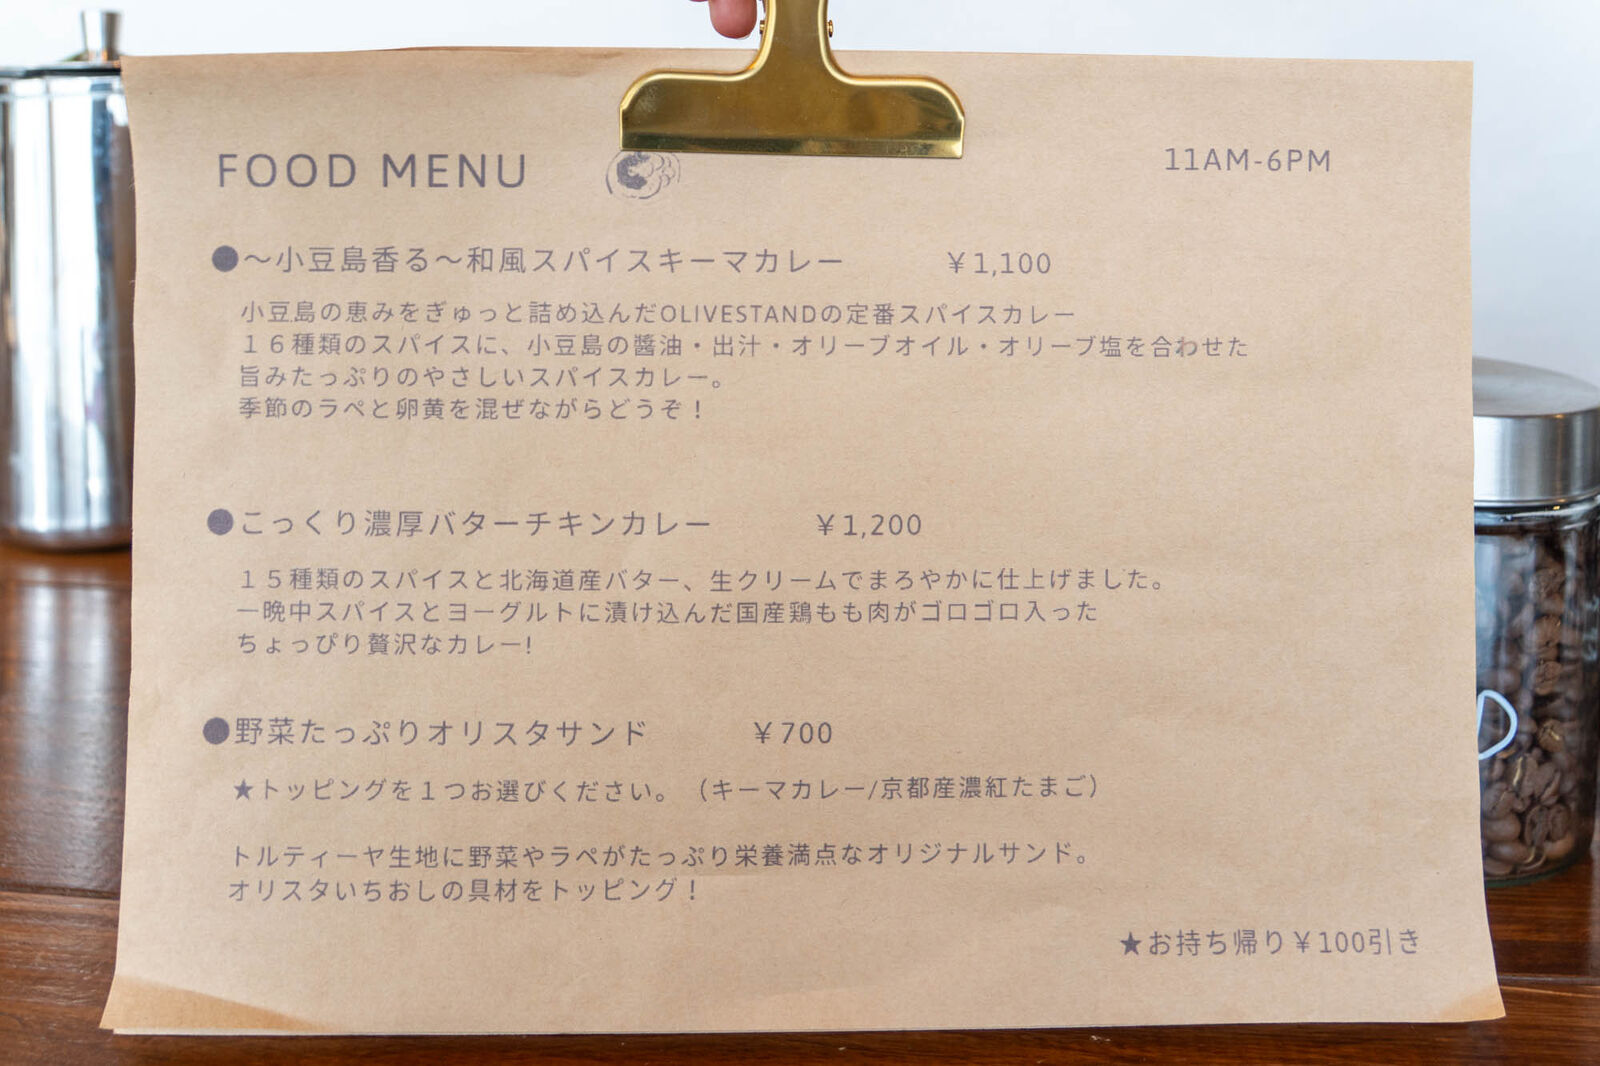 FOOD MENU
11AM-6PM
●～小豆島香る～和風スパイスキーマカレー ￥1,100
小豆島の恵みをぎゅっと詰め込んだOLIVESTANDの定番スパイスカレー
１６種類のスパイスに、小豆島の醬油・出汁・オリーブオイル・オリーブ塩を合わせた
旨みたっぷりのやさしいスパイスカレー。
季節のラペと卵黄を混ぜながらどうぞ！
●こっくり濃厚バターチキンカレー ￥1,200
１５種類のスパイスと北海道産バター、生クリームでまろやかに仕上げました。
一晩中スパイスとヨーグルトに漬け込んだ国産鶏もも肉がゴロゴロ入った
ちょっぴり贅沢なカレー!
●野菜たっぷりオリスタサンド ￥700
★トッピングを１つお選びください。（キーマカレー/京都産濃紅たまご）
トルティーヤ生地に野菜やラペがたっぷり栄養満点なオリジナルサンド。
オリスタいちおしの具材をトッピング！
★お持ち帰り￥100引き